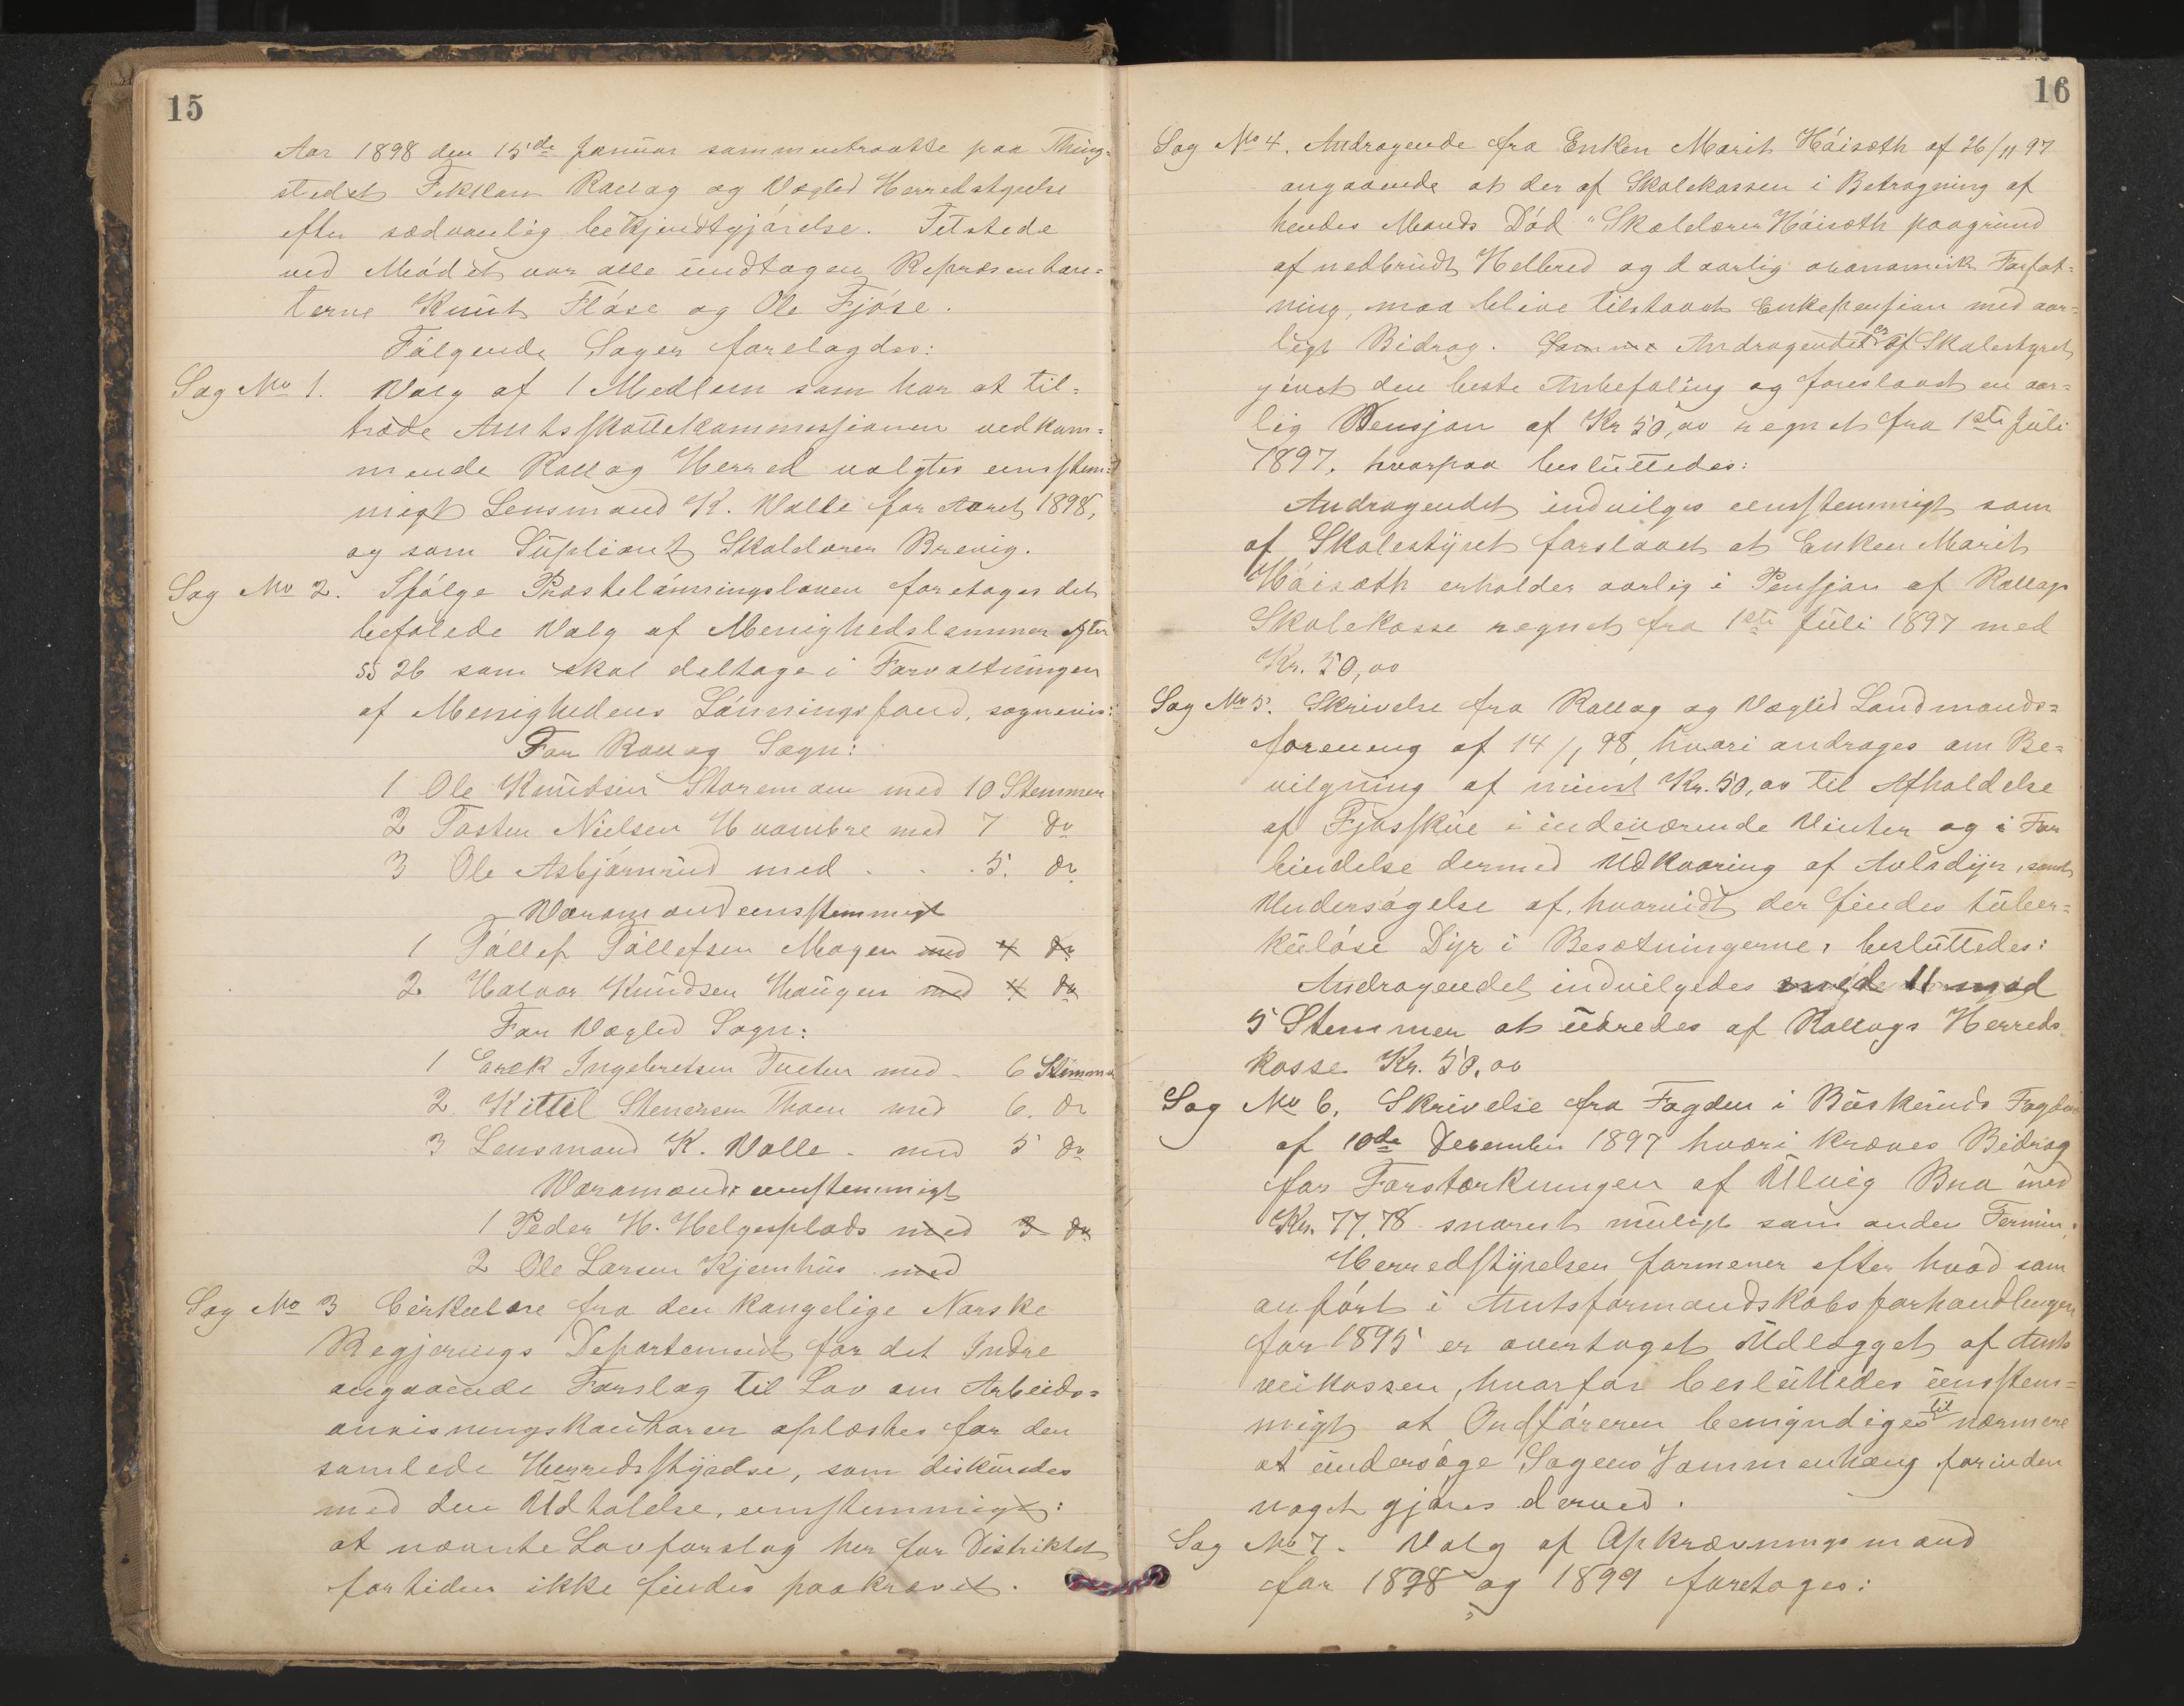 15
Aar 1898 den 15de Januar sammentraatte paa Thing-
stedet Fekkan Rollag og Væglid Herredstyrelse
efter sædvanlig bekjendtgjórelse. Tilstede
ved Módet var alle undtagen Repræsentan-
terne Knut Flóse og Ole Fjóse.
Fólgende Sager forelagdes:
Sag No 1. Valg af 1 Medlem som har at til-
træde Amtsskattekommissionen vedkom-
mende Rollag Herred valgtes eensstem-
migt Lensmand K. Valle for Aaret 1898,
og som Supliant Skolelærer Brevig.
Sag No 2. Ifólge Præstelónningsloven foretages det
befalede Valg af Menighedslemmer efter
§§ 26 som skal deltage i Forvaltningen
af Menighedens Lónningsfond, sognevis:
For Rollag Sogn:
1 Ole Knudsen Storemoen med 10 Stemmer
2 Tosten Nielsen Hvambre med 7 do
3 Ole Asbjórnrud med . . . 5. do
Varamænd eensstemmigt
1 Tóllef Tóllefsen Mogen med 4 do
2 Halvor Knudsen Haugen med 4 do
For Væglid Sogn:
1 Erek Ingebretsen Tveten med - 6 Stemmer
2 Kittil Stenersen Thoen med 6. do
3 Lensmand K. Valle - med 5 do
Varamænd: eenstemmigt
1 Peder H. Helgesplads med 3 do
2 Ole Larsen Kjemhus med
Sag No 3 Cirkulære fra den kongelige Norske
Regjerings Departement for det Indre
angaaende Forslag til Lov om Arbeids-
anvisningskontorer oplæstes for den
samlede Herredsstyrelse, som diskuredes
med den Udtalelse, eensstemmigt:
at nævnte Lovforslag her for Distriktet
fortiden ikke findes paakrævet.
16
Sag No 4. Andragende fra Enken Marit Hóisæth af 26/11 97
angaaende at der af Skolekassen i Betragning af
hendes Mands Dód "Skolelærer Hóisæth paagrund
af nedbrudt Helbred og daarlig økonomisk Forfat-
ning, maa blive tilstaaet Enkepension med aar-
ligt Bidrag. Samme Andragendet er af Skolestyret
givet den beste Anbefaling og foreslaaet en aar-
lig Pensjon af Kr 50,00 regnet fra 1ste Juli
1897. hvorpaa besluttedes:
Andragendet indvilges eensstemmigt som
af Skolestyret forslaaet at Enken Marit
Hóisæth erholder aarlig i Pensjon af Rollags
Skolekasse regnet fra 1ste Juli 1897 med
Kr. 50,00
Sag No 5. Skrivelse fra Rollag og Væglid Landmands-
forening af 14/1 98, hvori andrages om Be-
vilgning af minst Kr. 50,00 til Afholdelse
af Fjósskue i indeværende Vinter og i For
bindelse dermed Udkaaring af Avlsdyr, samt
Undersógelse af, hvorvidt der findes tuber-
kulóse Dyr i Besætningerne, besluttedes:
Andragendet indvilgedes med 11 mod
5 Stemmer at udredes af Rollags Herreds
kasse Kr. 50,00
Sag No 6. Skrivelse fra Fogden i Buskeruds Fogderi
af 10de December 1897 hvori kræves Bidrag
for Forstærkningen af Ulvig Bru med
Kr. 77,78 snarest muligt som anden Termin.
Herredsstyrelsen formener efter hvad som
anfórt i Amtsformandskabsforhandlingen
for 1895 er overtaget Udlægget af Amts
veikassen, hvorfor besluttedes eensstem-
migt at Ordfóreren bemyndiges til nærmere
at undersóge Sagens Sammenhæng forinden
noget gjóres derved.
Sag No 7. Valg af Opkrævningsmænd
for 1898 og 1899 foretoges: